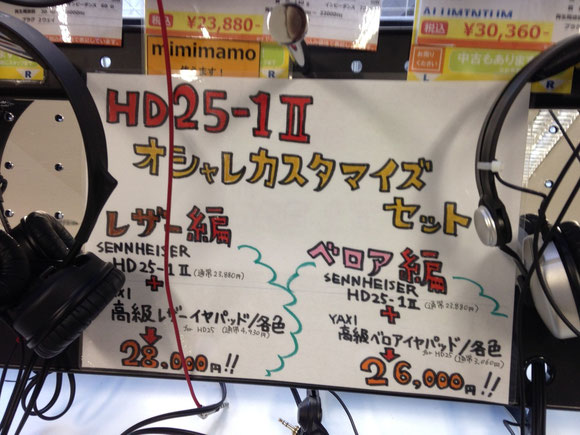 税込 ¥23,880
ALUMINIUM
税込 ¥30,360-
mimimamo
お買得ください
中古もあり
R
L
R
HD25-1Ⅱ
オシャレカスタマイズ
セット
レザー編
SENNHEISER
HD25-1Ⅱ (通常23,880円)
+
YAXI
高級レザーイヤパッド/各色
for HD25 (通常4,930円)
28,000円!!
ベロア編
SENNHEISER
HD25-1Ⅱ (通常23,880円)
+
YAXI
高級ベロアイヤパッド/各色
for HD25 (通常3,060円)
26,000円!!